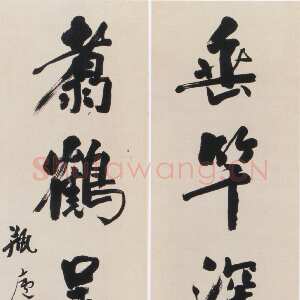 垂竿深
鶴
瓶廬
Shufawang.CN